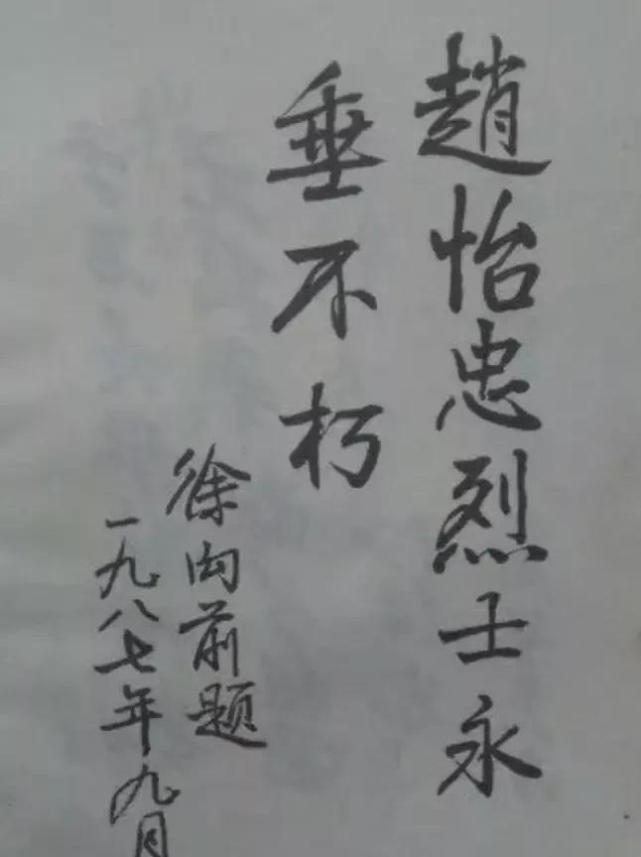 趙怡忠烈士永
垂不朽
徐向前题
一九八七年九月